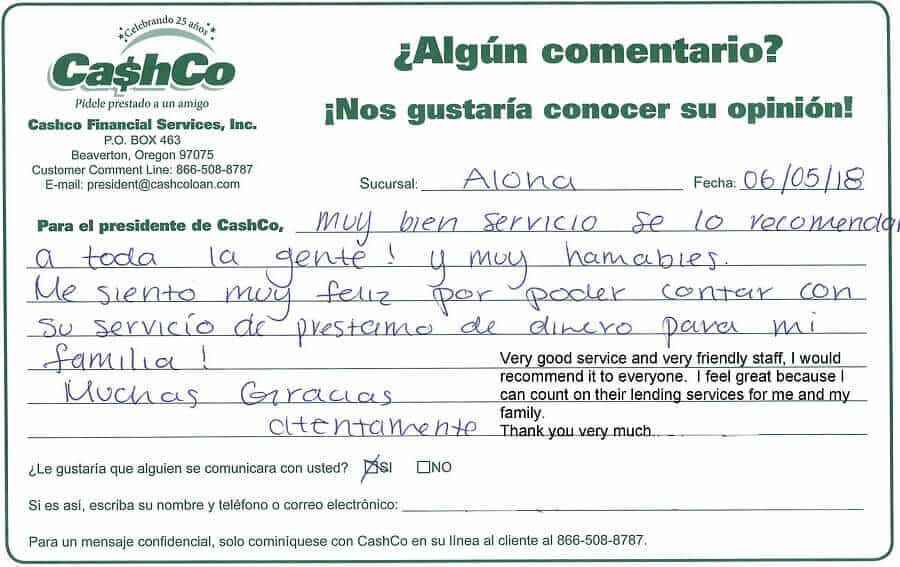 Celebrando 25 años
Ca$hCo
Pídele prestado a un amigo
Cashco Financial Services, Inc.
P.O. BOX 463
Beaverton, Oregon 97075
Customer Comment Line: 866-508-8787
E-mail: president@cashcoloan.com
¿Algún comentario?
¡Nos gustaría conocer su opinión!
Sucursal: Aloha Fecha: 06/05/18
Para el presidente de CashCo, muy bien servicio se lo recomendar
a toda la gente! y muy hamables.
Me siento muy feliz por poder contar con
su servicio de prestamo de dinero para mi
familia!
Muchas Gracias
atentamente
Very good service and very friendly staff, I would
recommend it to everyone. I feel great because I
can count on their lending services for me and my
family.
Thank you very much.
¿Le gustaría que alguien se comunicara con usted? SI NO
Si es así, escriba su nombre y teléfono o correo electrónico:
Para un mensaje confidencial, solo cominíquese con CashCo en su línea al cliente al 866-508-8787.